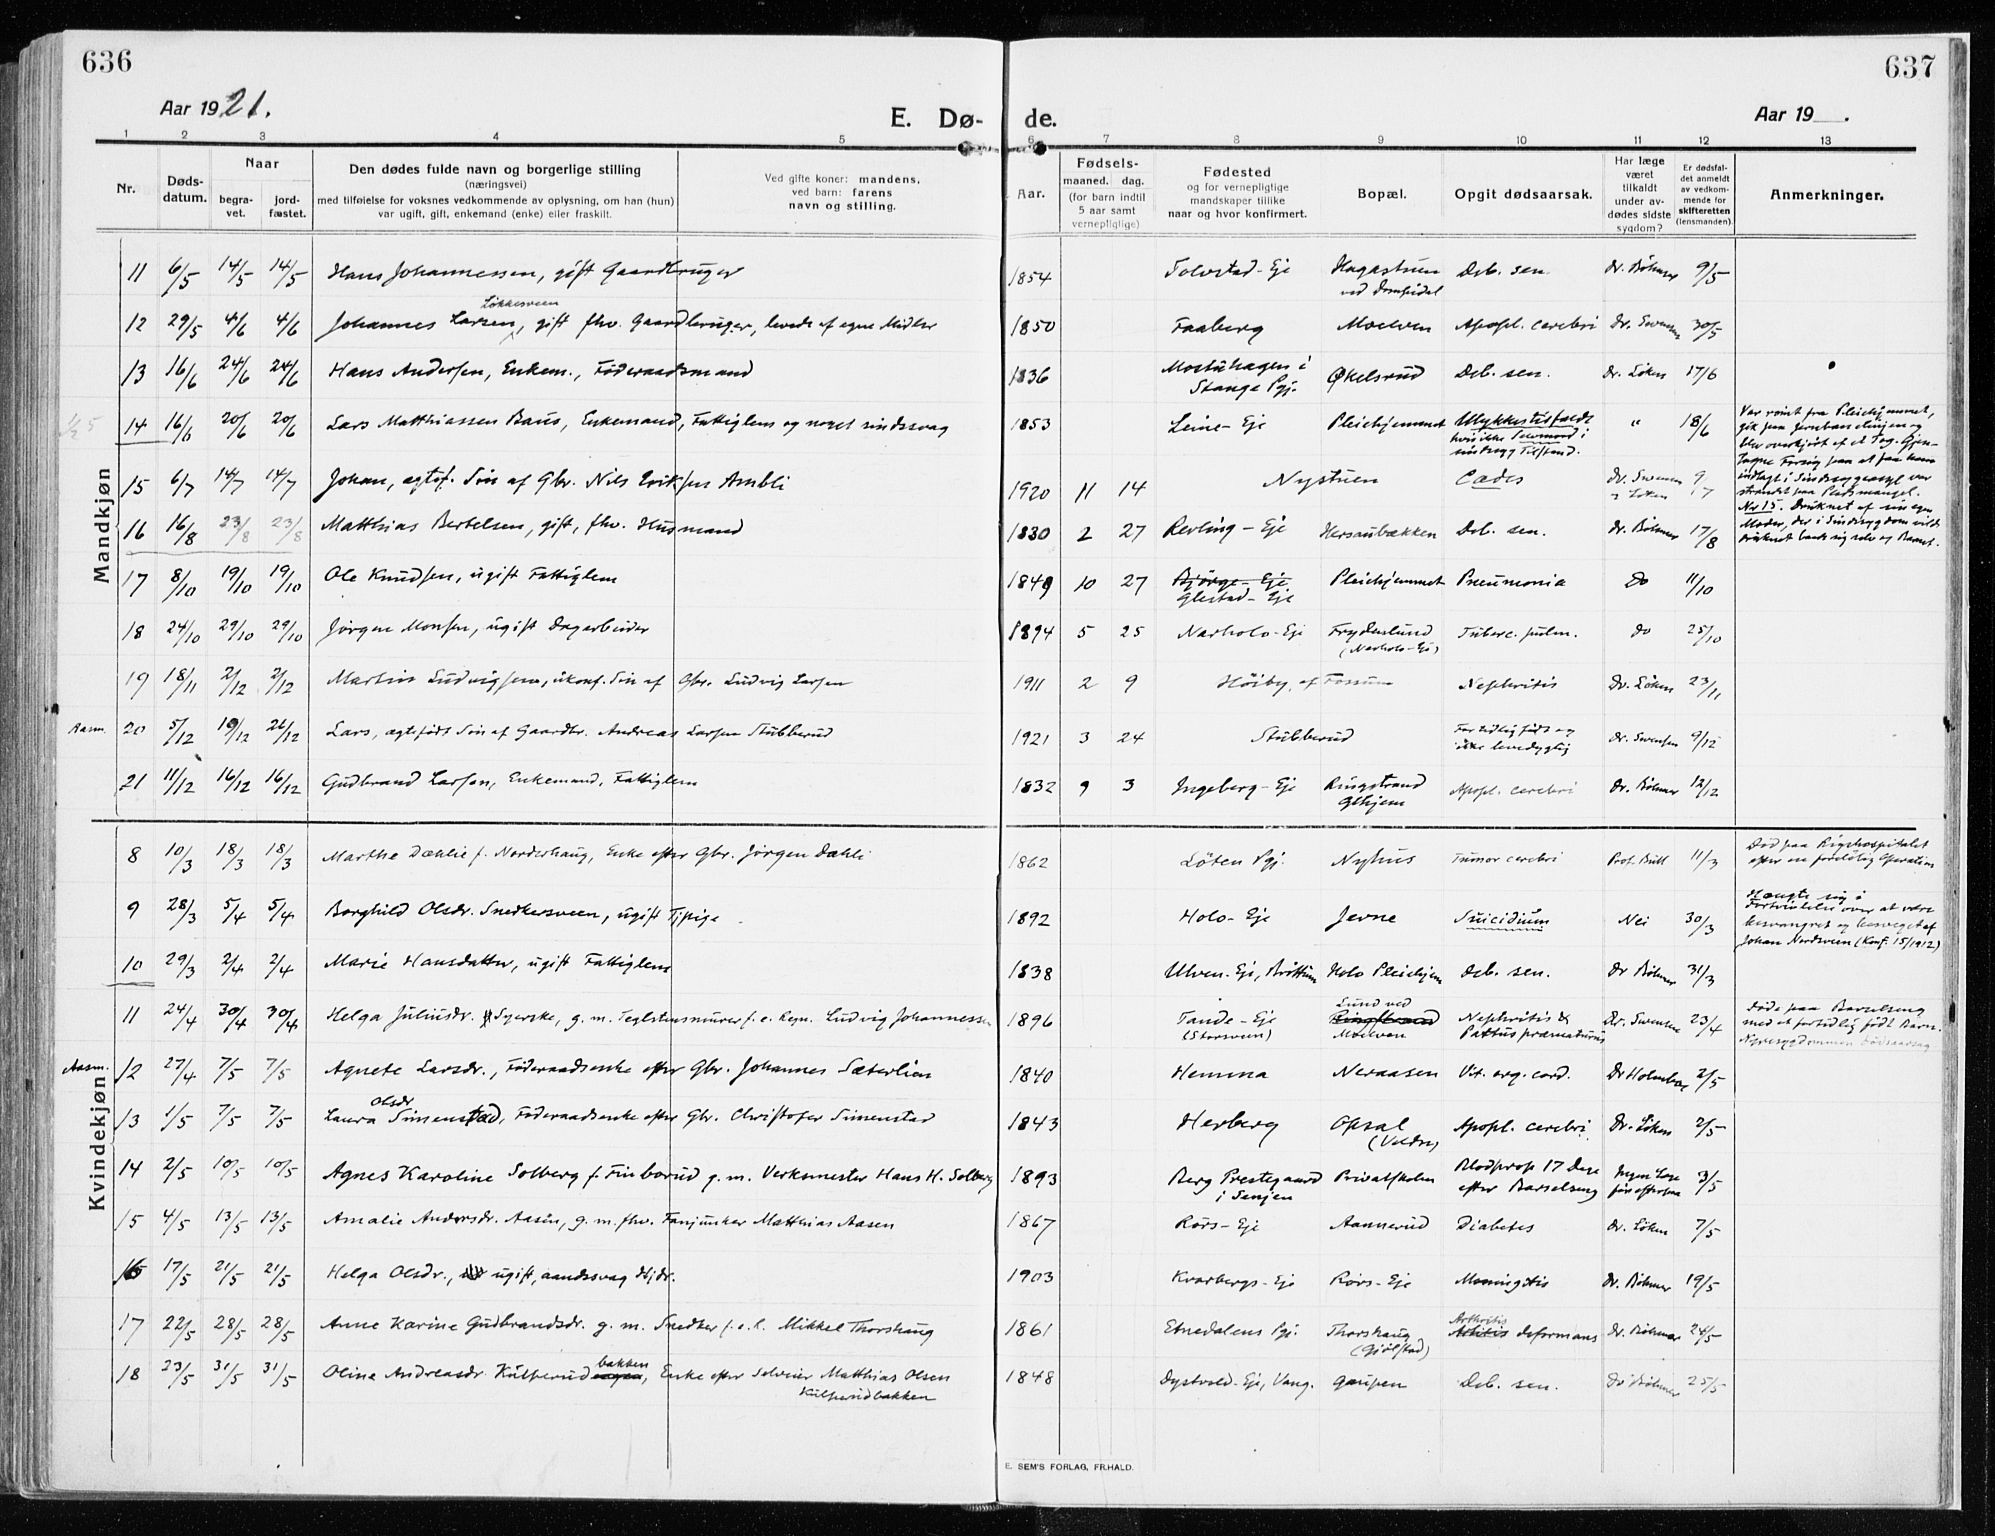 636
637
Aar 1921.
E. Dø-
de.
Aar 19 .
1 2 3 4 5 6 7 8 9 10 11 12 13
Nr.
Døds-
datum.
Naar
begra-
vet.
jord-
fæstet.
Den dødes fulde navn og borgerlige stilling
(næringsvei)
med tilføielse for voksnes vedkommende av oplysning, om han (hun)
var ugift, gift, enkemand (enke) eller fraskilt.
Ved gifte koner: mandens,
ved barn: farens
navn og stilling.
Aar.
Fødsels-
maaned. dag.
(for barn indtil
5 aar samt
vernepligtige)
Fødested
og for vernepligtige
mandskaper tillike
naar og hvor konfirmert.
Bopæl.
Opgit dødsaarsak.
Har læge
været
tilkaldt
under av-
dødes sidste
sygdom?
Er dødsfal-
det anmeldt
av vedkom-
mende for
skifteretten
(lensmanden).
Anmerkninger.
Mandkjøn
11 6/5 14/5 14/5 Hans Johannessen, gift Gaardbruger 1854 Tolvstad-Eje Hagastuen Deb. sen. Dr. Böhmer 9/5
Løkkesveen
12 29/5 4/6 4/6 Johannes Larsen, gift fhv. Gaardbruger, levede af egne Midler 1850 Faaberg Moelven Apopl. cerebri Dr. Swensen 30/5
13 16/6 24/6 24/6 Hans Andersen, Enkem., Føderaadsmand 1836 Mostuhagen i Økelsrud Deb. sen. Dr. Löken 17/6
Stange Pgj.
14 16/6 20/6 20/6 Lars Matthiassen Baus, Enkemand, Fattiglem og noget sindssvag 1853 Leine-Eje Pleiehjemmet Ulykkestilfælde " 18/6
hvis ikke Selvmord i
sindssyg Tilstand.
Var rømt fra Pleiehjemmet,
gik paa Jernbanelinjen og
blev overkjørt af et Tog. Gjen-
tagne Forsøg paa at faa ham
indlagt i Sindssygeasyl var
strandet paa Pladsmangel.
15 6/7 14/7 14/7 Johan, ægtef. Søn af Gbr. Nils Eriksen Ambli 1920 11 14 Nystuen Cædes Dr. Swensen 9/7
& Löken
Nr 15. Druknet af sin egen
Moder, der i Sindssygdom vilde
drukne baade sig selv og Barnet.
16 16/8 23/8 23/8 Matthias Bertelsen, gift, fhv. Husmand 1830 2 27 Revling-Eje Hersaubækken Deb. sen. Dr. Böhmer 17/8
17 8/10 19/10 19/10 Ole Knudsen, ugift Fattiglem 1849 10 27 Bjørge-Eje Pleiehjemmet Pneumonia do 11/10
Glestad-Eje
18 24/10 29/10 29/10 Jørgen Monsen, ugift Dagarbeider 1894 5 25 Narholo-Eje Frydenlund Tuberc. pulm. do 25/10
(Narholo-Eje)
19 18/11 2/12 2/12 Martin Ludvigsen, ukonf. Søn af Gbr. Ludvig Larsen 1911 2 9 Høiby, af Fossum Nephritis Dr. Löken 23/11
Aasm. 20 5/12 19/12 21/12 Lars, ægtefødt Søn af Gaardbr. Andreas Larsen Stubberud 1921 3 24 Stubberud For tidlig født og Dr. Swensen 9/12
ikke levedygtig
21 11/12 16/12 16/12 Gudbrand Larsen, Enkemand, Fattiglem 1832 9 3 Ingeberg-Eje Ringstrand Apopl. cerebri Dr. Böhmer 12/12
Glhjem
Kvindekjøn
8 10/3 18/3 18/3 Marthe Dæhlie f. Norderhaug, Enke efter Gbr. Jørgen Dæhli 1862 Løten Pgj. Nyhus Tumor cerebri Prof. Bull 11/3
Død paa Rigshospitalet
efter en foreløbig Operation
9 28/3 5/4 5/4 Borghild Olsdr. Snedkersveen, ugift Tjpige 1892 Holo-Eje Jevne Suicidium Nei 30/3
Hængte sig i
Fortvivlelse over at være
besvangret og besveget af
Johan Nordsveen (Konf. 15/1912)
10 29/3 2/4 2/4 Marie Hansdatter, ugift Fattiglem 1838 Ulven-Eje, Brøttum Holo Pleiehjem Deb. sen. Dr Böhmer 31/3
11 24/4 30/4 30/4 Helga Juliusdr. Syerske, g.m. Teglstensmurer f.e. Regn. Ludvig Johannessen 1896 Tande-Eje Lund ved Nephritis & Dr. Swensen 23/4
(Storsveen) Ringstrand Moelven Partus præmaturus
Døde paa Barselseng
med et fortidlig født Barn.
Nyresygdommen Dødsaarsag
Aasm. 12 27/4 7/5 7/5 Agnete Larsdr., Føderaadsenke efter Gbr. Johannes Sæterlien 1840 Hemma Neraasen Vit. org. cord. Dr Holmboe 2/5
Olsdr
13 1/5 7/5 7/5 Laura Simenstad, Føderaadsenke efter Gbr. Christofer Simenstad 1843 Herberg Opsal Apopl. cerebri. Dr. Löken 2/5
(Veldre)
14 2/5 10/5 10/5 Agnes Karoline Solberg f. Finborud g.m. Verksmester Hans H. Solberg 1893 Berg Prestegaard Privatskolen Blodprop 17 Dage Ingen Læge 3/5
i Senjen efter Barselseng
15 4/5 13/5 13/5 Amalie Andersdr. Aasen, g.m. fhv. Fanjunker Matthias Aasen 1867 Rørs-Eje Aannerud Diabetes Dr. Löken 7/5
16 17/5 21/5 21/5 Helga Olsdr., ugift, aandssvag Hjdr. 1903 Kvarbergs-Eje Rørs-Eje Meningitis Dr. Böhmer 19/5
17 22/5 28/5 28/5 Anne Karine Gudbrandsdr. g.m. Snedker f.e.l. Mikkel Thorshaug 1861 Etnedalens Pgj. Thorshaug Arthritis deformans Dr. Böhmer 24/5
(Gjölstad)
bakken
18 23/5 31/5 31/5 Oline Andreasdr. Kulserud, Enke efter Selveier Matthias Olsen 1848 Dystvold-Eje, Vang. Gaupen Deb. sen. Dr Böhmer 25/5
Kulserudbakken
E. SEM'S FORLAG, FR.HALD.